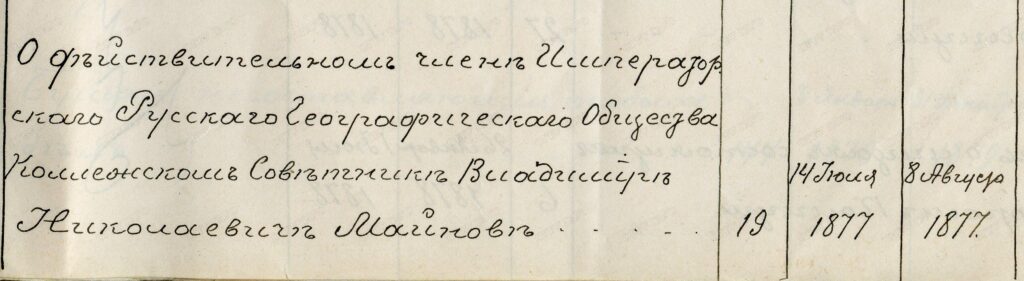 О дѣйствительномъ членѣ Император
скаго Русскаго Географическаго Общества
Коллежскомъ Совѣтникѣ Владимірѣ 14 Іюля 8 Августа
Николаевичѣ Майновѣ . . . . . . 19 1877 1877.